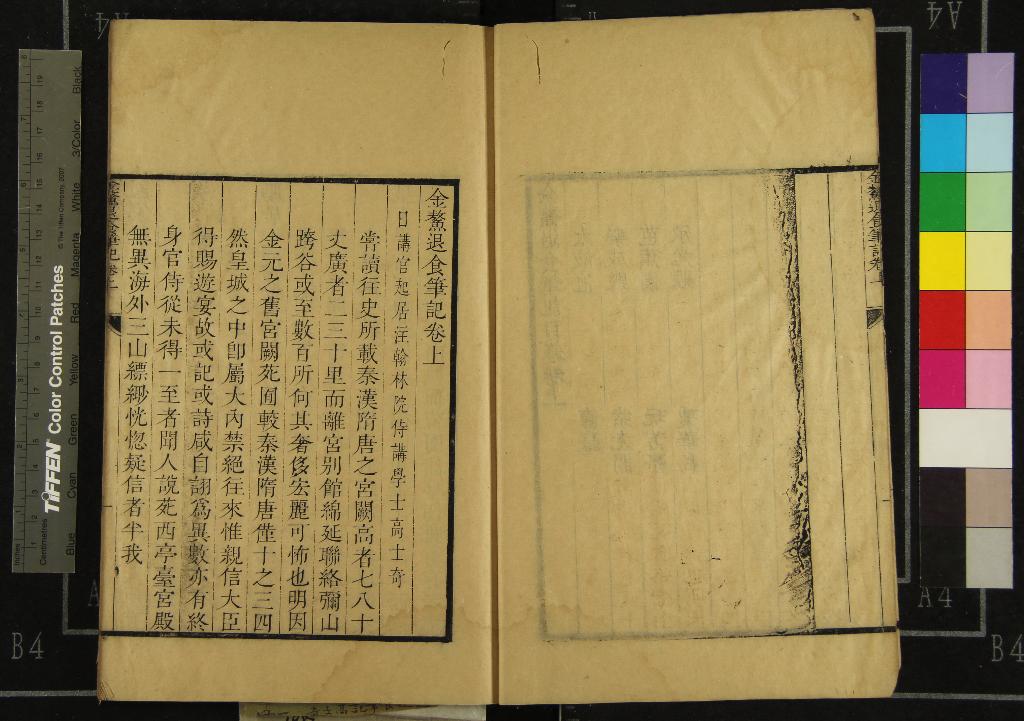 金鰲退食筆記卷上
日講官起居注翰林院侍講學士高士奇
嘗讀往史所載秦漢隋唐之宮闕高者七八十
丈廣者二三十里而離宮別館綿延聯絡彌山
跨谷或至數百所何其奢侈宏麗可怖也明因
金元之舊宮闕苑囿較秦漢隋唐僅十之三四
然皇城之中卽屬大內禁絕往來惟親信大臣
得賜遊宴故或記或詩咸自詡爲異數亦有終
身官侍從未得一至者聞人說苑西亭臺宮殿
無異海外三山縹緲恍惚疑信者半我
金鰲退食筆記卷上
金鰲退食筆記卷上
TIFFEN Color Control Patches
© The Tiffen Company, 2007
Inches
Centimetres
Blue Cyan Green Yellow Red Magenta White 3/Color Black
A4
A4
A4
B4
B4